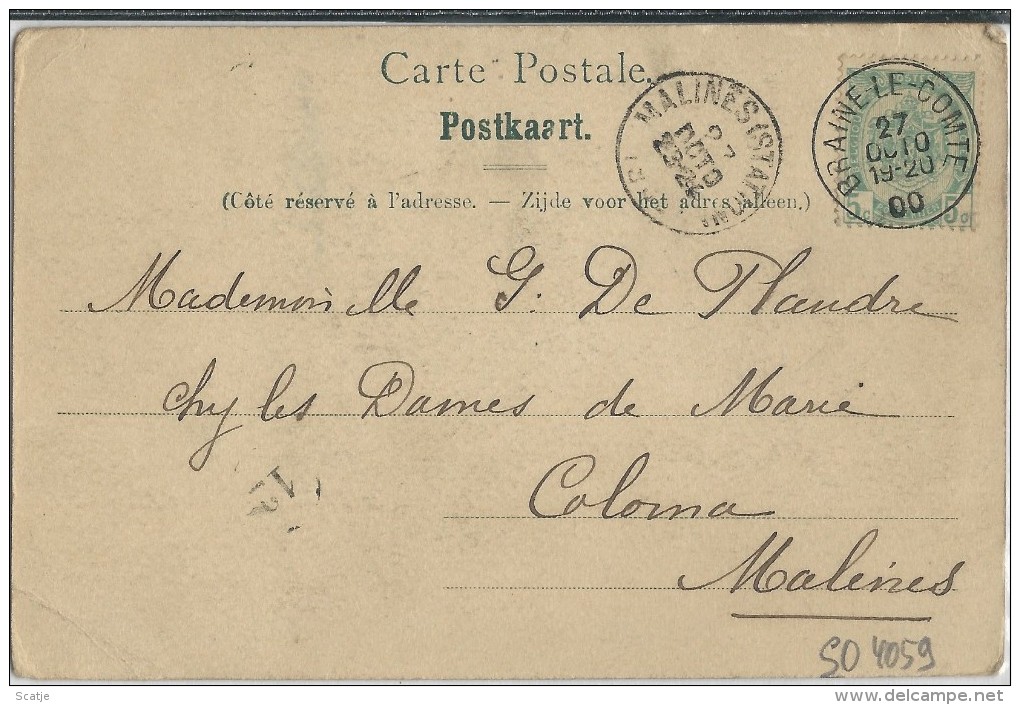 Carte Postale.
Postkaart.
(Côté réservé à l'adresse. — Zijde voor het adres alleen.)
MALINES (STATION)
27
OCTO
23-24
BRAINE-LE-COMTE
27
OCTO
19-20
00
Mademoiselle G. De Plandre
chez les Dames de Marie
Coloma
Malines
SO 4059
Scatje
delcampe.net